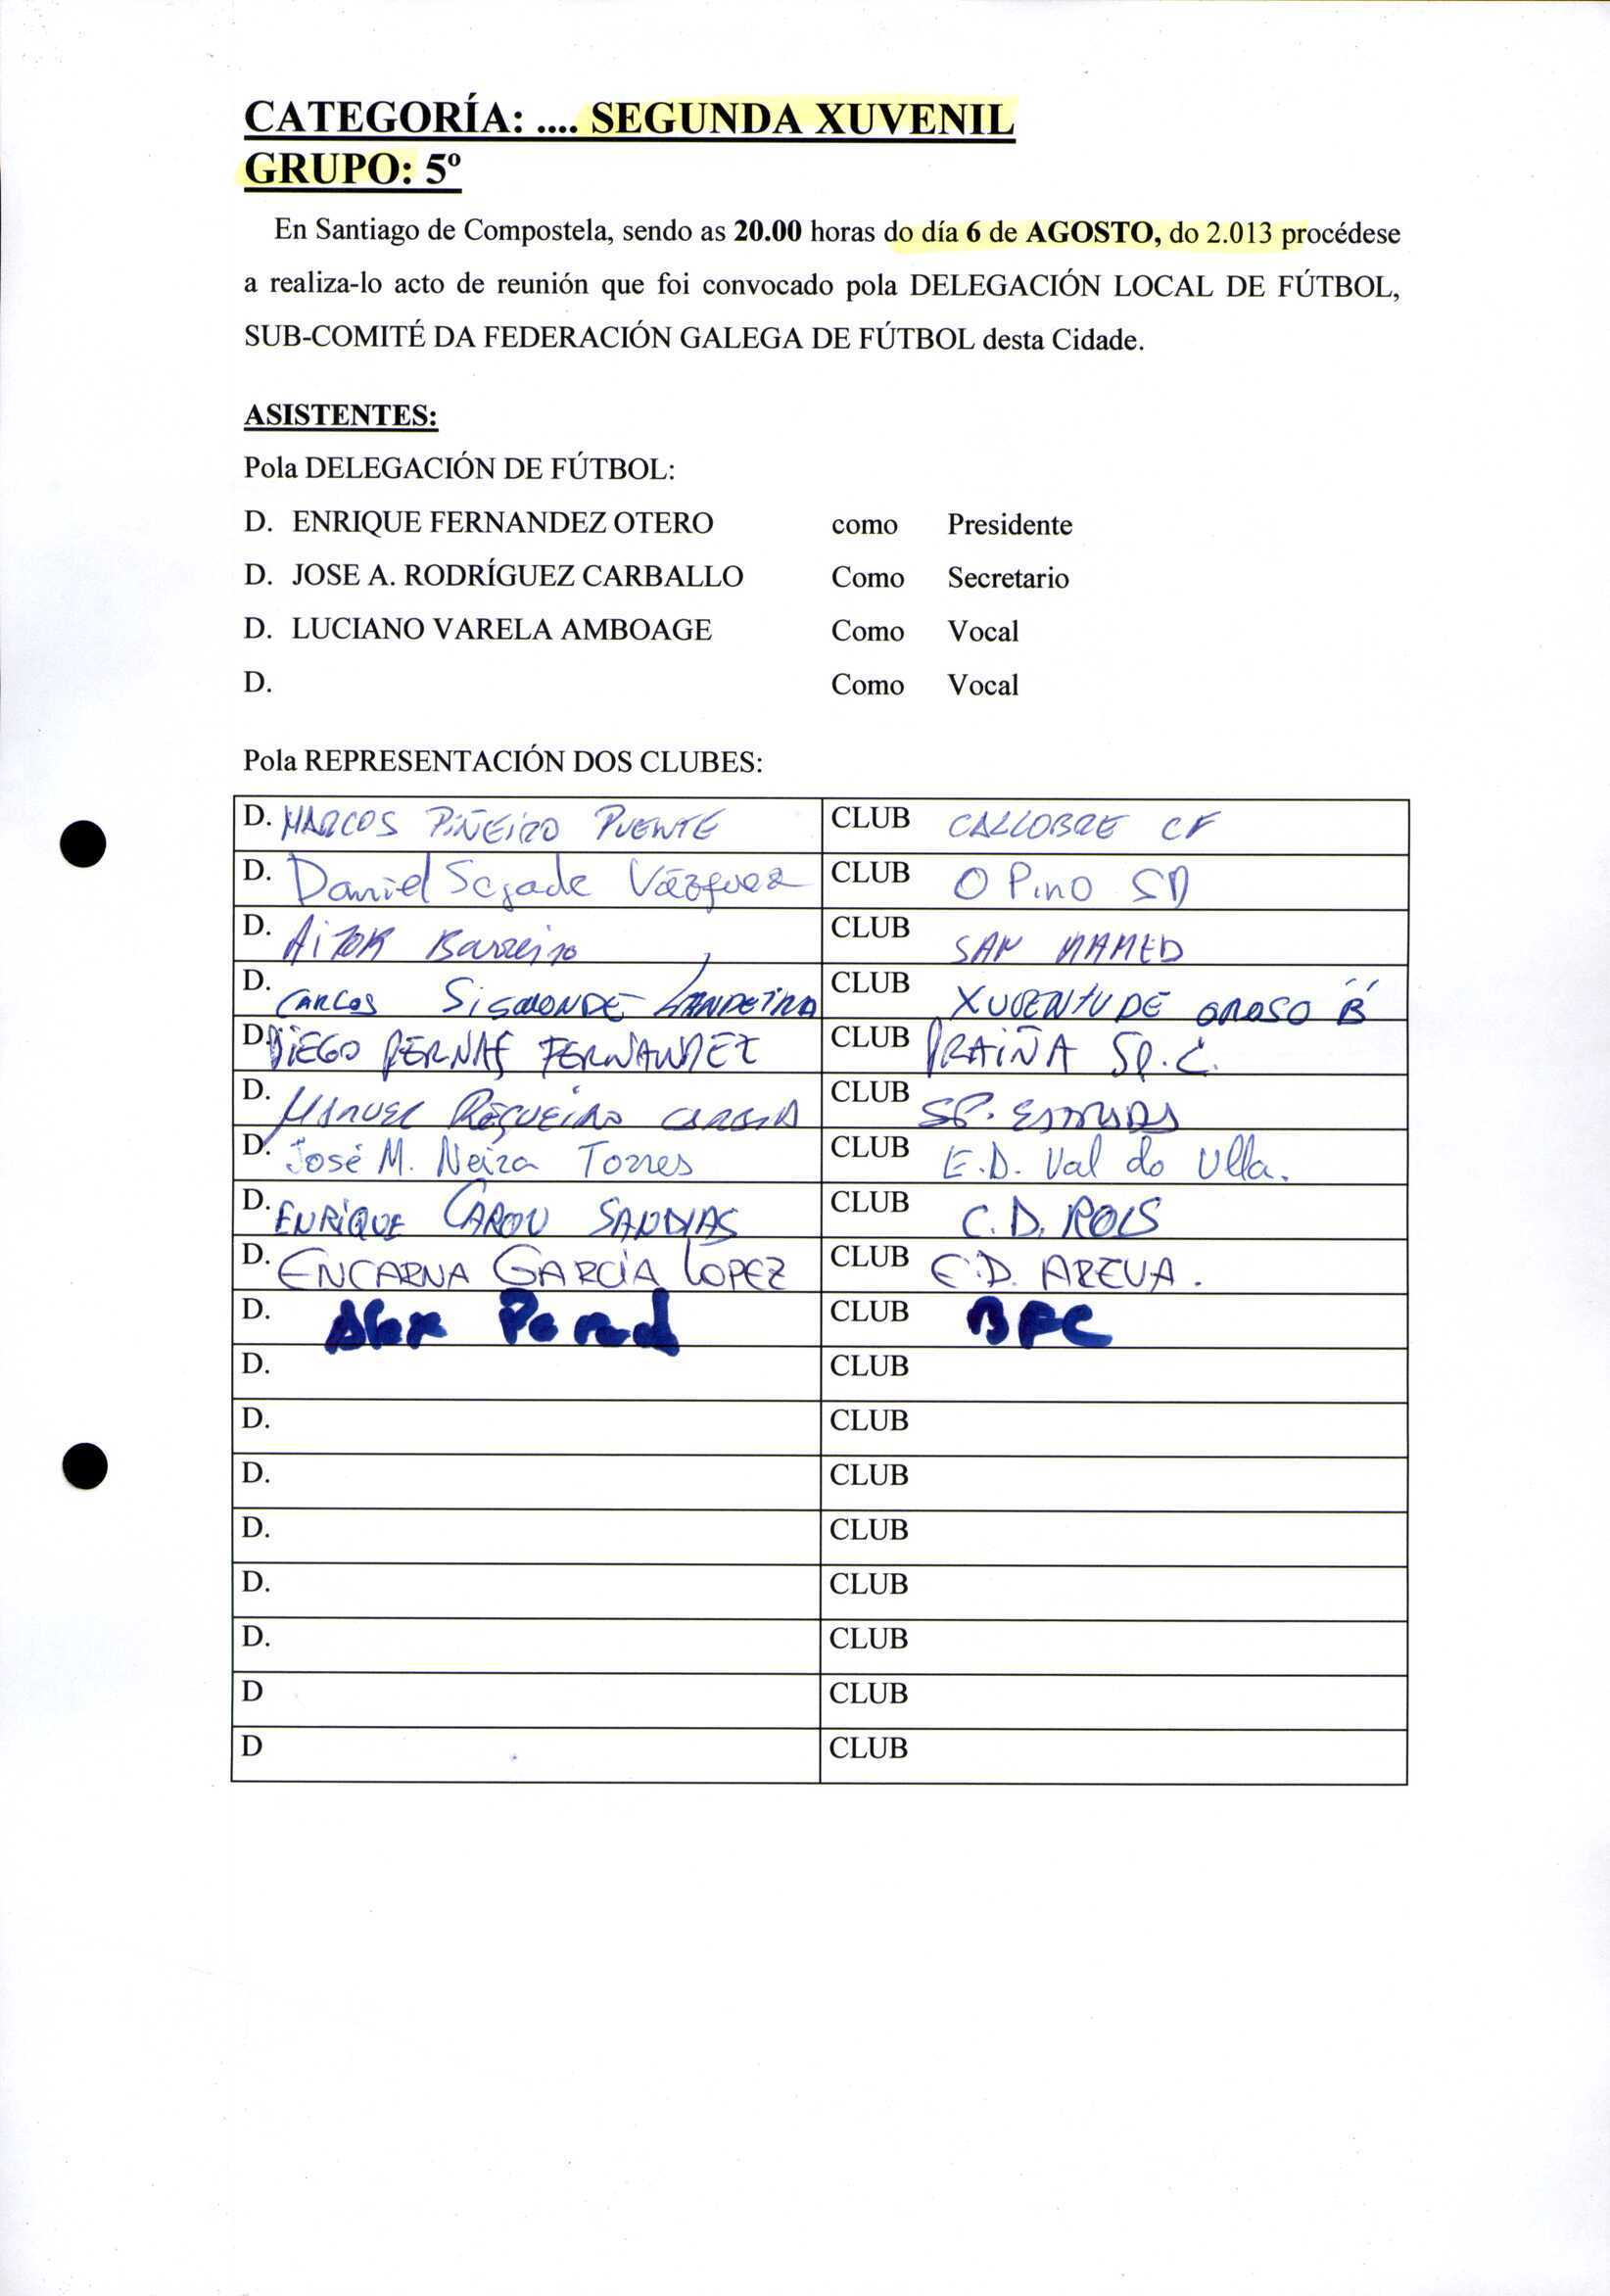 CATEGORÍA: .... SEGUNDA XUVENIL
GRUPO: 5º
En Santiago de Compostela, sendo as 20.00 horas do día 6 de AGOSTO, do 2.013 procédese
a realiza-lo acto de reunión que foi convocado pola DELEGACIÓN LOCAL DE FÚTBOL,
SUB-COMITÉ DA FEDERACIÓN GALEGA DE FÚTBOL desta Cidade.
ASISTENTES:
Pola DELEGACIÓN DE FÚTBOL:
D. ENRIQUE FERNANDEZ OTERO como Presidente
D. JOSE A. RODRÍGUEZ CARBALLO Como Secretario
D. LUCIANO VARELA AMBOAGE Como Vocal
D. Como Vocal
Pola REPRESENTACIÓN DOS CLUBES:
D. MARCOS PIÑEIRO PUENTE CLUB CALLOBRE CF
D. Daniel Segade Vázquez CLUB O Pino SD
D. AiTOR Barreiro CLUB SAN MAMED
D. CARLOS SISMONDE LANDEIRA CLUB XUVENTUDE OROSO "B"
D. DIEGO PERNAS FERNANDEZ CLUB PRAIÑA SP.C.
D. MANUEL REGUEIRO GARCIA CLUB SP. ESTRADA
D. José M. Neira Torres CLUB E.D. Val do Ulla.
D. ENRIQUE CAROU SANDIAS CLUB C.D. ROIS
D. ENCARNA GARCÍA LOPEZ CLUB E.D. AREUA.
D. Alex CLUB BFC
D. CLUB
D. CLUB
D. CLUB
D. CLUB
D. CLUB
D. CLUB
D CLUB
D CLUB